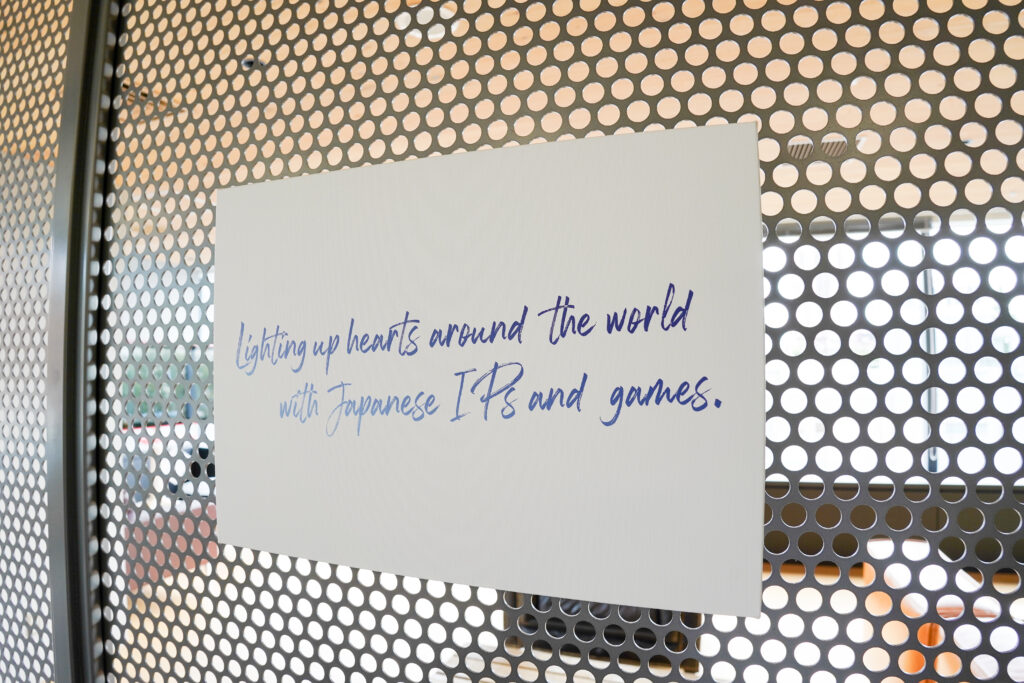 Lighting up hearts around the world
with Japanese IPs and games.